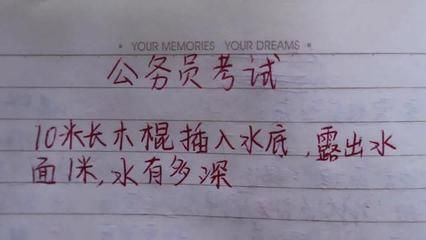 YOUR MEMORIES YOUR DREAMS
公务员考试
10米长木棍插入水底,露出水
面1米,水有多深